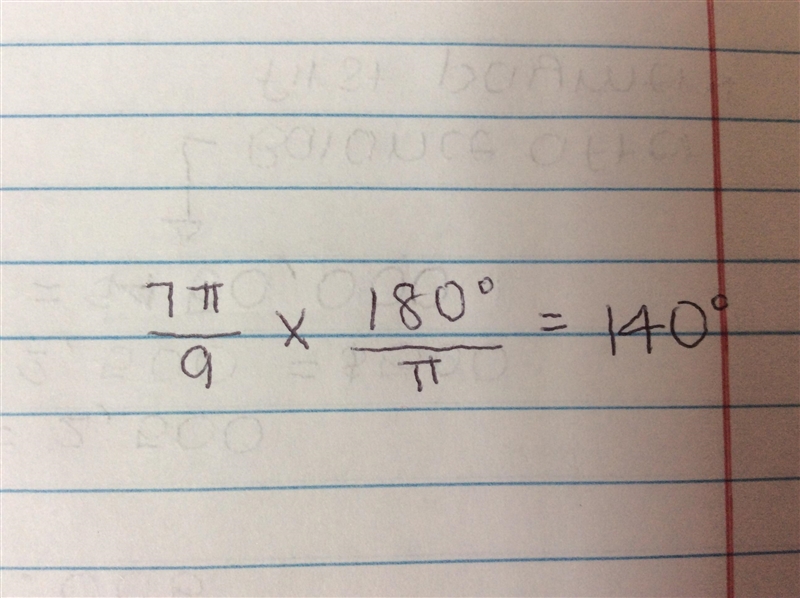 7π/9 × 180°/π = 140°